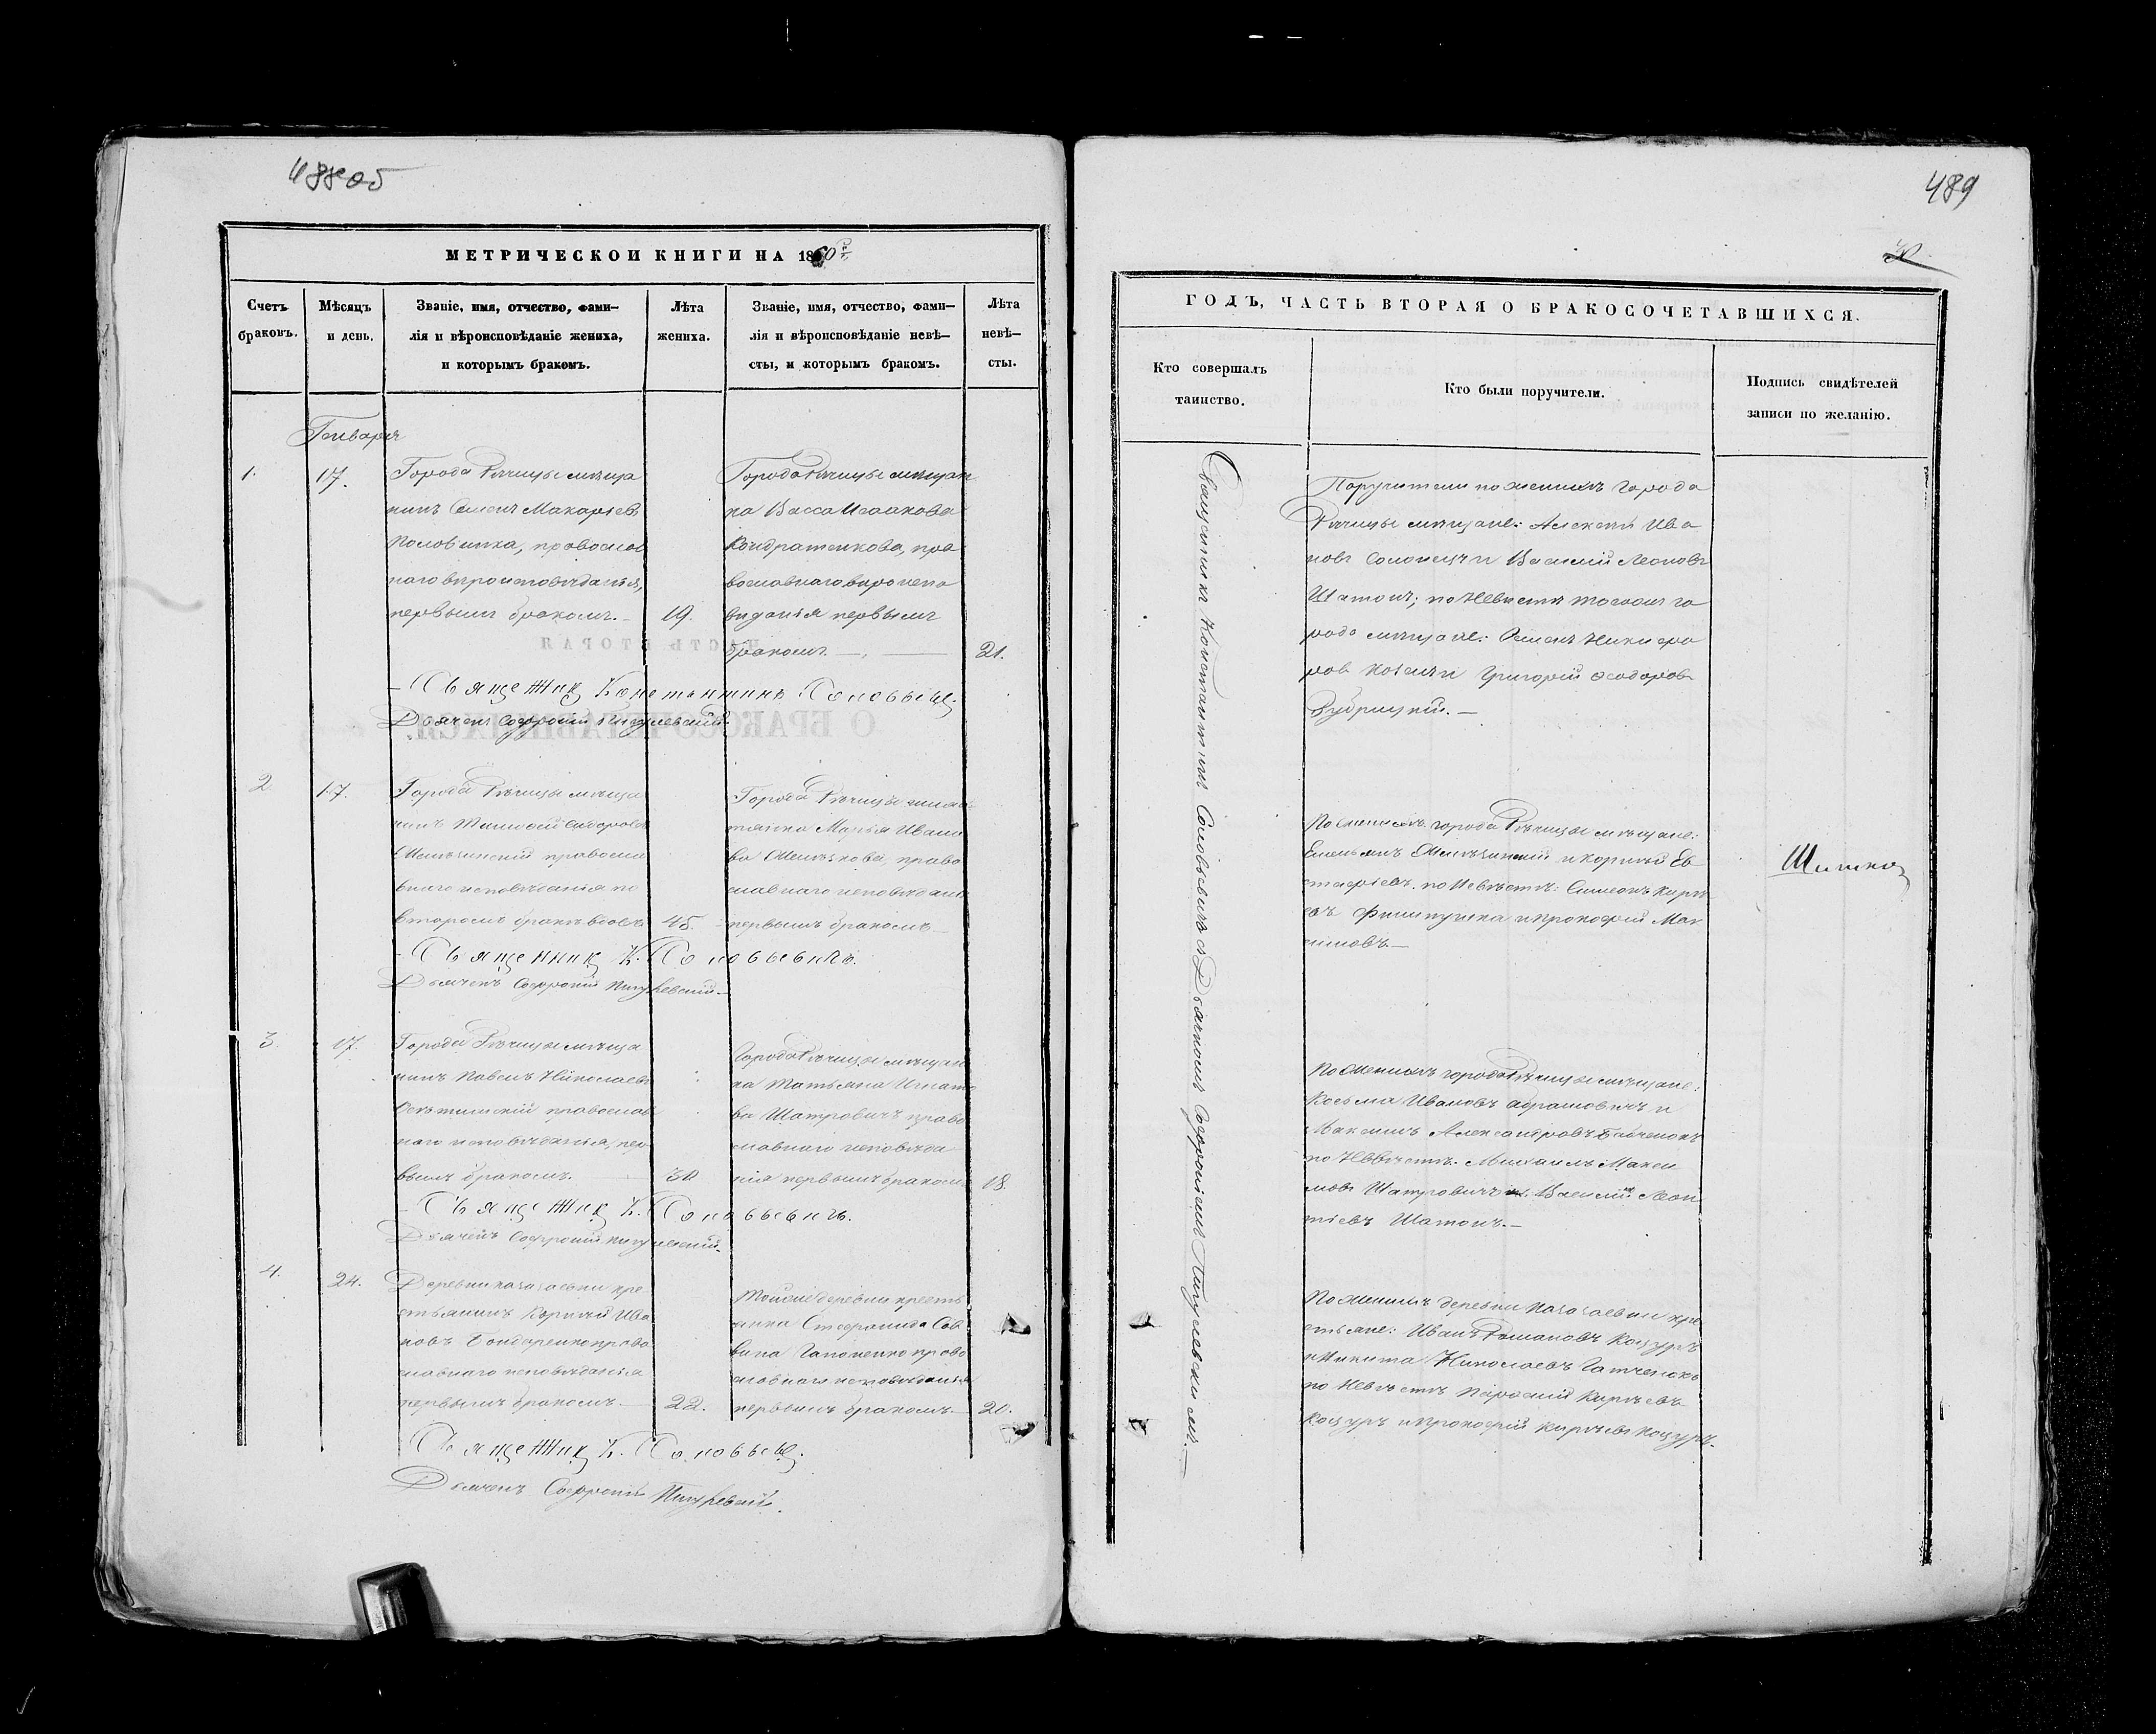 488 об
МЕТРИЧЕСКОЙ КНИГИ НА 1860й
Счетъ браковъ.
Мѣсяцъ и день.
Званіе, имя, отчество, фами-
лія и вѣроисповѣданіе жениха,
и которымъ бракомъ.
Лѣта жениха.
Званіе, имя, отчество, фами-
лія и вѣроисповѣданіе невѣ-
сты, и которымъ бракомъ.
Лѣта невѣ-
сты.
Генварь
1.
17.
Города Рѣчицы мѣща
нинъ Семенъ Макаріевъ
Половинка, православ
наго вѣроисповѣданія,
первымъ бракомъ.
19.
Города Рѣчицы мѣщан
ка Васса Исаакова
Кондратенкова, пра
вославнаго вѣроиспо
вѣданія первымъ
бракомъ.
21.
Священникъ Константинъ Соловьевичъ.
Дьячекъ Софроній Пигулевскій.
2
17.
Города Рѣчицы мѣща
нинъ Тимофей Сидоровъ
правосла
внаго исповѣданія по
второмъ бракѣ вдовъ
45.
Города Рѣчицы
Марья Ивано
ва право
славнаго исповѣданія
первымъ бракомъ
Священникъ К. Соловьевичъ.
Дьячекъ Софроній Пигулевскій
3.
17.
Города Рѣчицы мѣща
нинъ Павелъ Николаевъ
православ
наго исповѣданія, пер
вымъ бракомъ.
30
Города Рѣчицы мѣщан
ка Татьяна Игнато
ва Шатровичъ право
славнаго исповѣда
нія первымъ бракомъ
18.
Священникъ К. Соловьевичъ.
Дьячекъ Софроній Пигулевскій.
4.
24.
Деревни кре
стьянинъ Корнѣй Ива
новъ Бондаренко право
славнаго исповѣданія
первымъ бракомъ.
22.
Тойже деревни кресть
янка Стефанида Сав
вина Гапоненко право
славнаго исповѣданія
первымъ бракомъ.
20.
Священникъ К. Соловьевичъ.
Дьячекъ Софроній Пигулевскій.
489
30
ГОДЪ, ЧАСТЬ ВТОРАЯ О БРАКОСОЧЕТАВШИХСЯ.
Кто совершалъ
таинство.
Кто были поручители.
Подпись свидѣтелей
записи по желанію.
Священникъ Константинъ Соловьевичъ съ Дьячкомъ Софроніемъ Пигулевскимъ.
Поручители по женихѣ города
Рѣчицы мѣщане: Алексѣй Ива
новъ и Василій Леоновъ
Шатонъ; по невѣстѣ тогожъ го
рода мѣщане: Семенъ Никифо
ровъ и Григорій Ѳеодоровъ
Дубрицкій.
По женихѣ города Рѣчицы мѣщане:
Емельянъ и Корнѣй Ев
стафіевъ. по невѣстѣ: Симеонъ Кирѣ
евъ и Прокофій Мак
симовъ.
По женихѣ города Рѣчицы мѣщане:
Косьма Ивановъ Абрамовичъ и
Максимъ Александровъ
по невѣстѣ. Михаилъ Макси
мовъ Шатровичъ и Василій Леон
тіевъ Шатонъ.
По женихѣ деревни кре
стьяне: Иванъ Романовъ Коцуръ
и Никита Николаевъ
по невѣстѣ Кирѣевъ
Коцуръ и Прокофій Кирѣевъ Коцуръ.